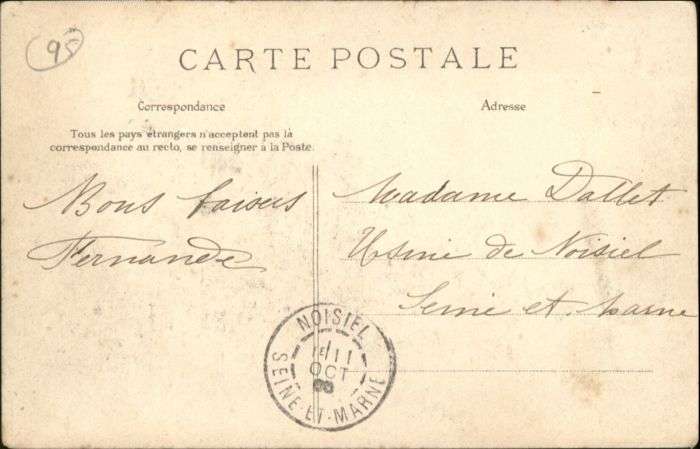 95
CARTE POSTALE
Correspondance
Adresse
Tous les pays étrangers n'acceptent pas la
correspondance au recto, se renseigner à la Poste.
Bons baisers
Fernande
Madame Dallet
Usine de Noisiel
Seine et Marne
NOISIEL
11
OCT
SEINE-ET-MARNE